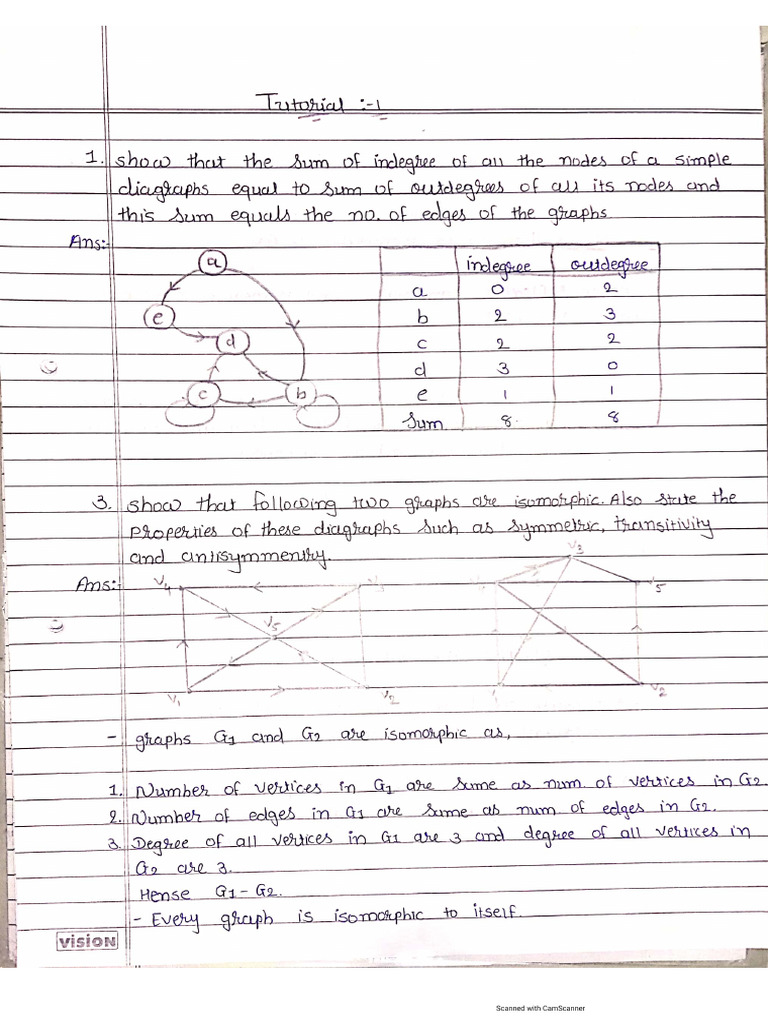 Tutorial :-1
1. show that the sum of indegree of all the nodes of a simple
diagraphs equal to sum of outdegrees of all its nodes and
this sum equals the no. of edges of the graphs.
Ans:-
a
e
d
c
b
indegree outdegree
a 0 2
b 2 3
c 2 2
d 3 0
e 1 1
Sum 8 8
3. show that following two graphs are isomorphic. Also state the
properties of these diagraphs such as symmetric, transitivity
and antisymmentry.
Ans:-
V4 V3 V5 V1 V2
V3 V5 V2
- graphs G1 and G2 are isomorphic as,
1. Number of vertices in G1 are same as num. of vertices in G2.
2. Number of edges in G1 are same as num of edges in G2.
3. Degree of all vertices in G1 are 3 and degree of all vertices in
G2 are 3.
Hense G1-G2.
- Every graph is isomorphic to itself.
vision
Scanned with CamScanner